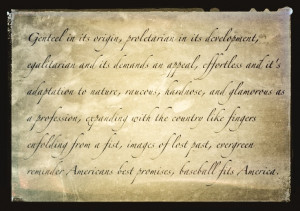 Genteel in its origin, proletarian in its development,
egalitarian and its demands an appeal, effortless and it's
adaptation to nature, raucous, hardnose, and glamorous as
a profession, expanding with the country like fingers
unfolding from a fist, images of lost past, evergreen
reminder Americans best promises, baseball fits America.